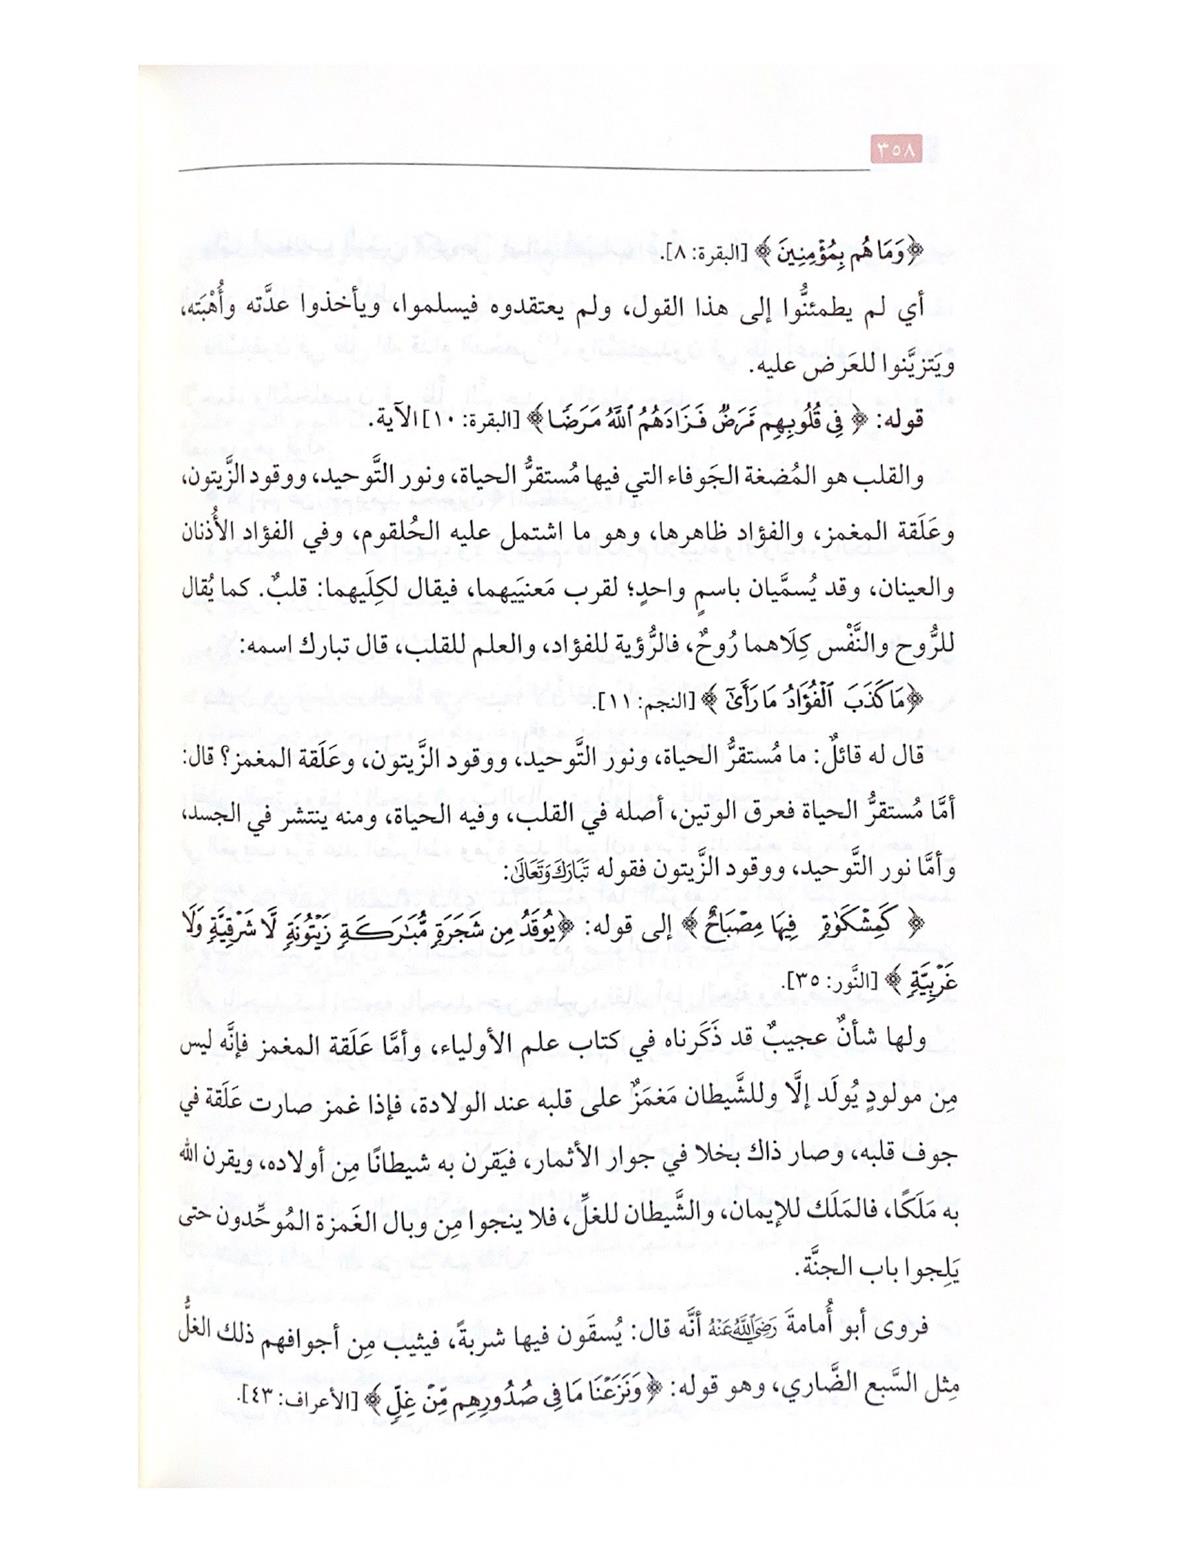 ٣٥٨
﴿وَمَا هُم بِمُؤْمِنِينَ﴾ [البقرة: ٨].
أي لم يطمئنُّوا إلى هذا القول، ولم يعتقدوه فيسلموا، ويأخذوا عدَّته وأُهْبَته،
ويَتزيَّنوا للعَرض عليه.
قوله: ﴿فِي قُلُوبِهِم مَّرَضٌ فَزَادَهُمُ ٱللَّهُ مَرَضًا﴾ [البقرة: ١٠] الآية.
والقلب هو المُضغة الجَوفاء التي فيها مُستقرُّ الحياة، ونور التَّوحيد، ووقود الزَّيتون،
وعَلَقة المغمز، والفؤاد ظاهرها، وهو ما اشتمل عليه الحُلقوم، وفي الفؤاد الأُذنان
والعينان، وقد يُسمَّيان باسمٍ واحدٍ؛ لقرب مَعنيَيهما، فيقال لكِلَيهما: قلبٌ. كما يُقال
للرُّوح والنَّفْس كِلَاهما رُوحٌ، فالرُّؤية للفؤاد، والعلم للقلب، قال تبارك اسمه:
﴿مَا كَذَبَ ٱلْفُؤَادُ مَا رَأَىٰٓ﴾ [النجم: ١١].
قال له قائلٌ: ما مُستقرُّ الحياة، ونور التَّوحيد، ووقود الزَّيتون، وعَلَقة المغمز؟ قال:
أمَّا مُستقرُّ الحياة فعرق الوتين، أصله في القلب، وفيه الحياة، ومنه ينتشر في الجسد،
وأمَّا نور التَّوحيد، ووقود الزَّيتون فقوله تَبَارَكَ وَتَعَالَىٰ:
﴿كَمِشْكَوٰةٍ فِيهَا مِصْبَاحٌ﴾ إلى قوله: ﴿يُوقَدُ مِن شَجَرَةٍ مُّبَٰرَكَةٍ زَيْتُونَةٍ لَّا شَرْقِيَّةٍ وَلَا
غَرْبِيَّةٍ﴾ [النَّور: ٣٥].
ولها شأنٌ عجيبٌ قد ذَكَرناه في كتاب علم الأولياء، وأمَّا عَلَقة المغمز فإنَّه ليس
مِن مولودٍ يُولَد إلَّا وللشَّيطان مَغمَزٌ على قلبه عند الولادة، فإذا غمز صارت عَلَقة في
جوف قلبه، وصار ذاك بخلا في جوار الأثمار، فيَقرن به شيطانًا مِن أولاده، ويقرن الله
به مَلَكًا، فالمَلَك للإيمان، والشَّيطان للغلِّ، فلا ينجوا مِن وبال الغَمزة المُوحِّدون حتى
يَلِجوا باب الجنَّة.
فروى أبو أُمامةَ رَضِيَ ٱللَّهُ عَنْهُ أنَّه قال: يُسقَون فيها شربةً، فيثيب مِن أجوافهم ذلك الغلُّ
مِثل السَّبع الضَّاري، وهو قوله: ﴿وَنَزَعْنَا مَا فِى صُدُورِهِم مِّنْ غِلٍّ﴾ [الأعراف: ٤٣].